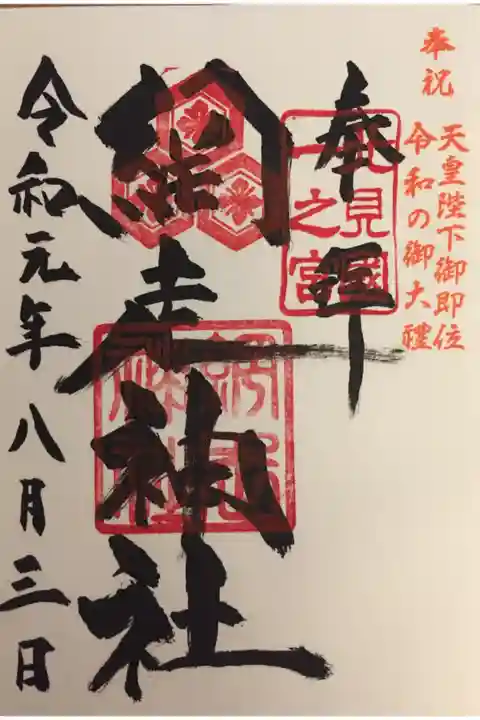 奉祝
天皇陛下御即位
令和の御大禮
奉拝
北見國
一之宮
網走神社
網走
神社
令和元年八月三日